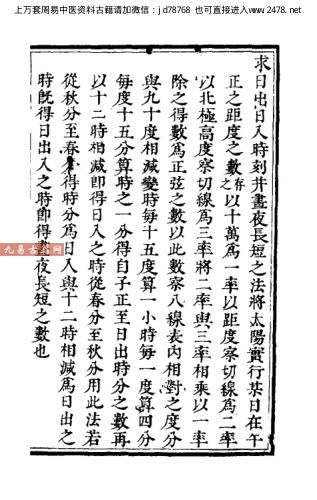 上万套周易中医资料古籍请加微信：jd78768 也可直接进入www.2478.net
求日出日入時刻并晝夜長短之法將太陽實行某日在午
正之距度之數存之以十萬爲一率以距度察切線爲二率
以北極高度察切線爲三率將二率與三率相乘以一率
除之得數爲正弦之數以此數察八線表内相對之度分
與九十度相減變時每十五度算一小時每一度算四分
每度十五分算時之一分得自子正至日出時分之數再
以十二時相減即得日入之時從春分至秋分用此法若
從秋分至春得時分爲日入與十二時相減爲日出之
時旣得日出入之時即得晝夜長短之數也
九易古籍网